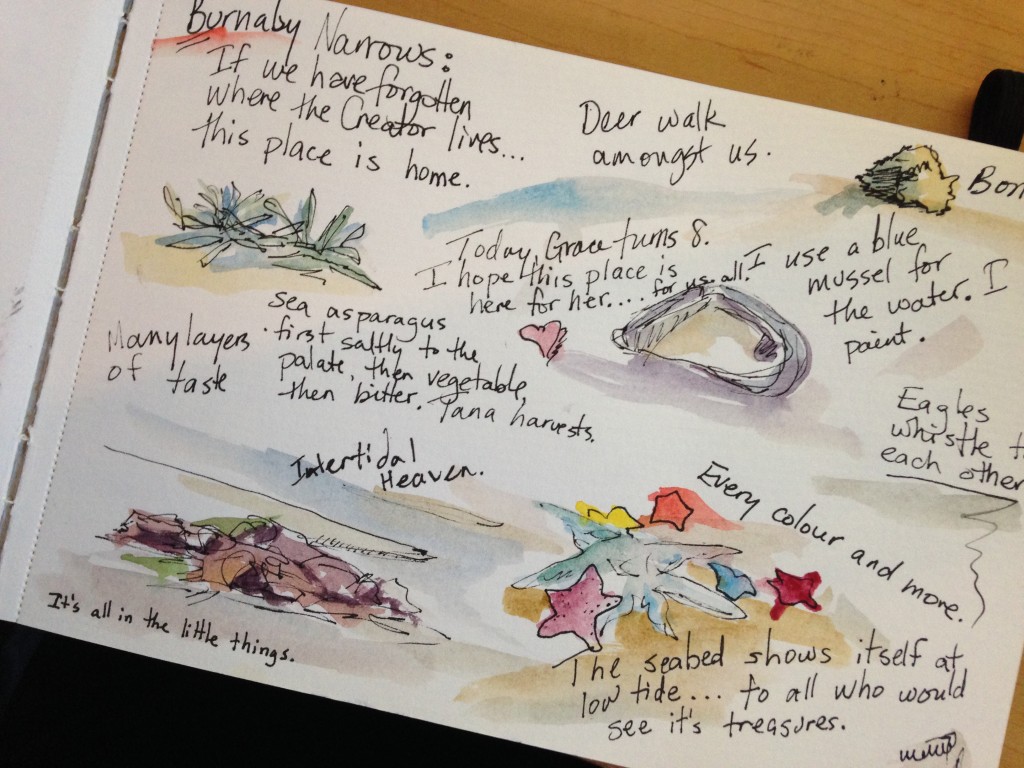 Burnaby Narrows:
If we have forgotten
where the Creator lives...
this place is home.
Deer walk
amongst us.
Today, Grace turns 8.
I hope this place is
here for her.... for us all.
I use a blue
mussel for
the water. I
paint.
Sea asparagus
first saltly to the
palate, then vegetable,
then bitter. Tana harvests.
Many layers
of taste
Eagles
whistle
each other
Intertidal
Heaven.
Every colour and more.
It's all in the little things.
The seabed shows itself at
low tide... to all who would
see it's treasures.